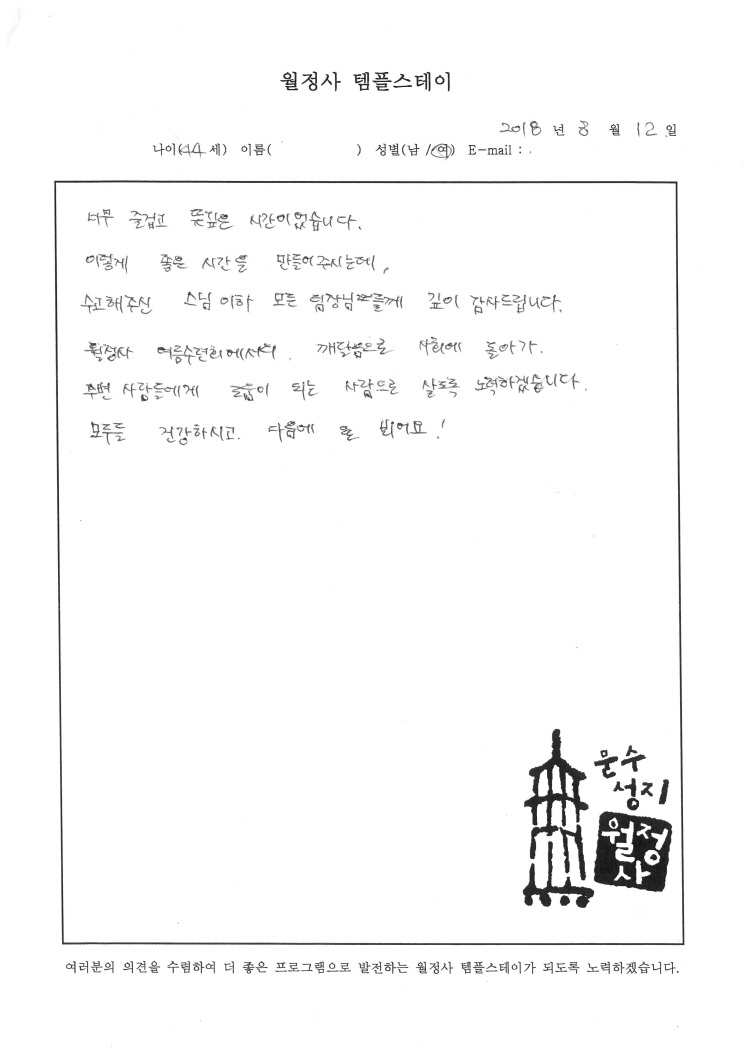 월정사 템플스테이
2018 년 8 월 12 일
나이(44 세) 이름( ) 성별(남 /여) E-mail :
너무 즐겁고 뜻깊은 시간이었습니다.
이렇게 좋은 시간을 만들어주시는데,
수고해주신 스님 이하 모든 팀장님들께 깊이 감사드립니다.
월정사 여름수련회에서의 깨달음으로 사회에 돌아가.
주변 사람들에게 도움이 되는 사람으로 살도록 노력하겠습니다.
모두들 건강하시고. 다음에 또 뵈어요!
문수
성지
월정
사
여러분의 의견을 수렴하여 더 좋은 프로그램으로 발전하는 월정사 템플스테이가 되도록 노력하겠습니다.